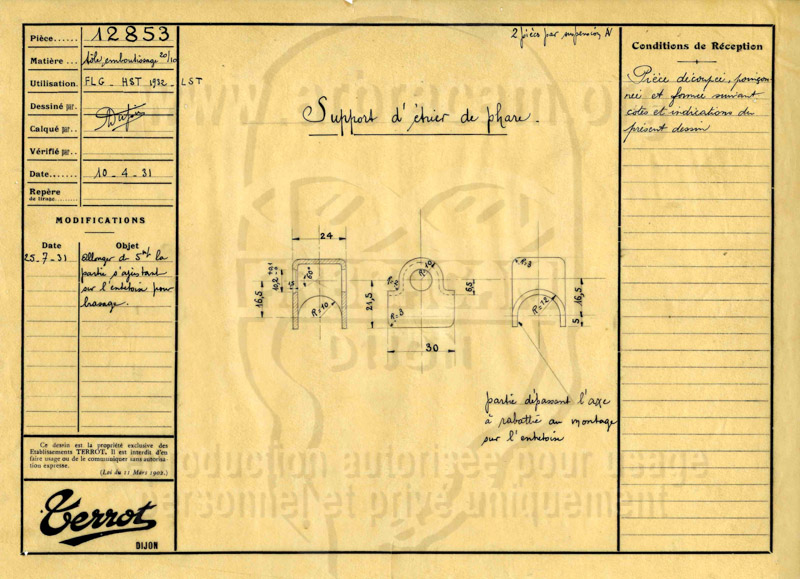 Pièce...... 12853
Matière... tôle emboutissage 20/10
Utilisation. FLG - HST 1932 - LST
Dessiné par.
Calqué par..
Vérifié par..
Date....... 10-4-31
Repère
de tirage
MODIFICATIONS
Date Objet
25-7-31 Allonger de 5m/m la
partie s'ajustant
sur l'entretoin pour
brasage.
Ce dessin est la propriété exclusive des
Etablissements TERROT, Il est interdit d'en
faire usage ou de le communiquer sans autorisa-
tion expresse.
(Loi du 11 Mars 1902.)
Terrot
DIJON
2 pièces par suspension AV
Support d'étrier de phare.
24
16,5
10,2
R=10
21,5
R=3
30
6,5
R=3
R=12
16,5
5
partie dépassant l'axe
à rabattre au montage
sur l'entretoin
Conditions de Réception
Pièce découpée, poinçon
née et formée suivant
cotes et indications du
présent dessin
DIJON
Reproduction autorisée pour usage
personnel et privé uniquement